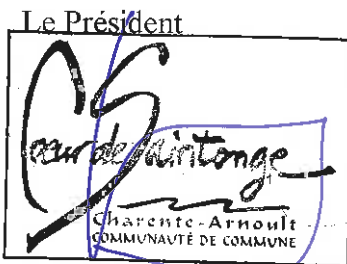 Le Président
Cœur de Saintonge
Charente-Arnoult
COMMUNAUTÉ DE COMMUNE